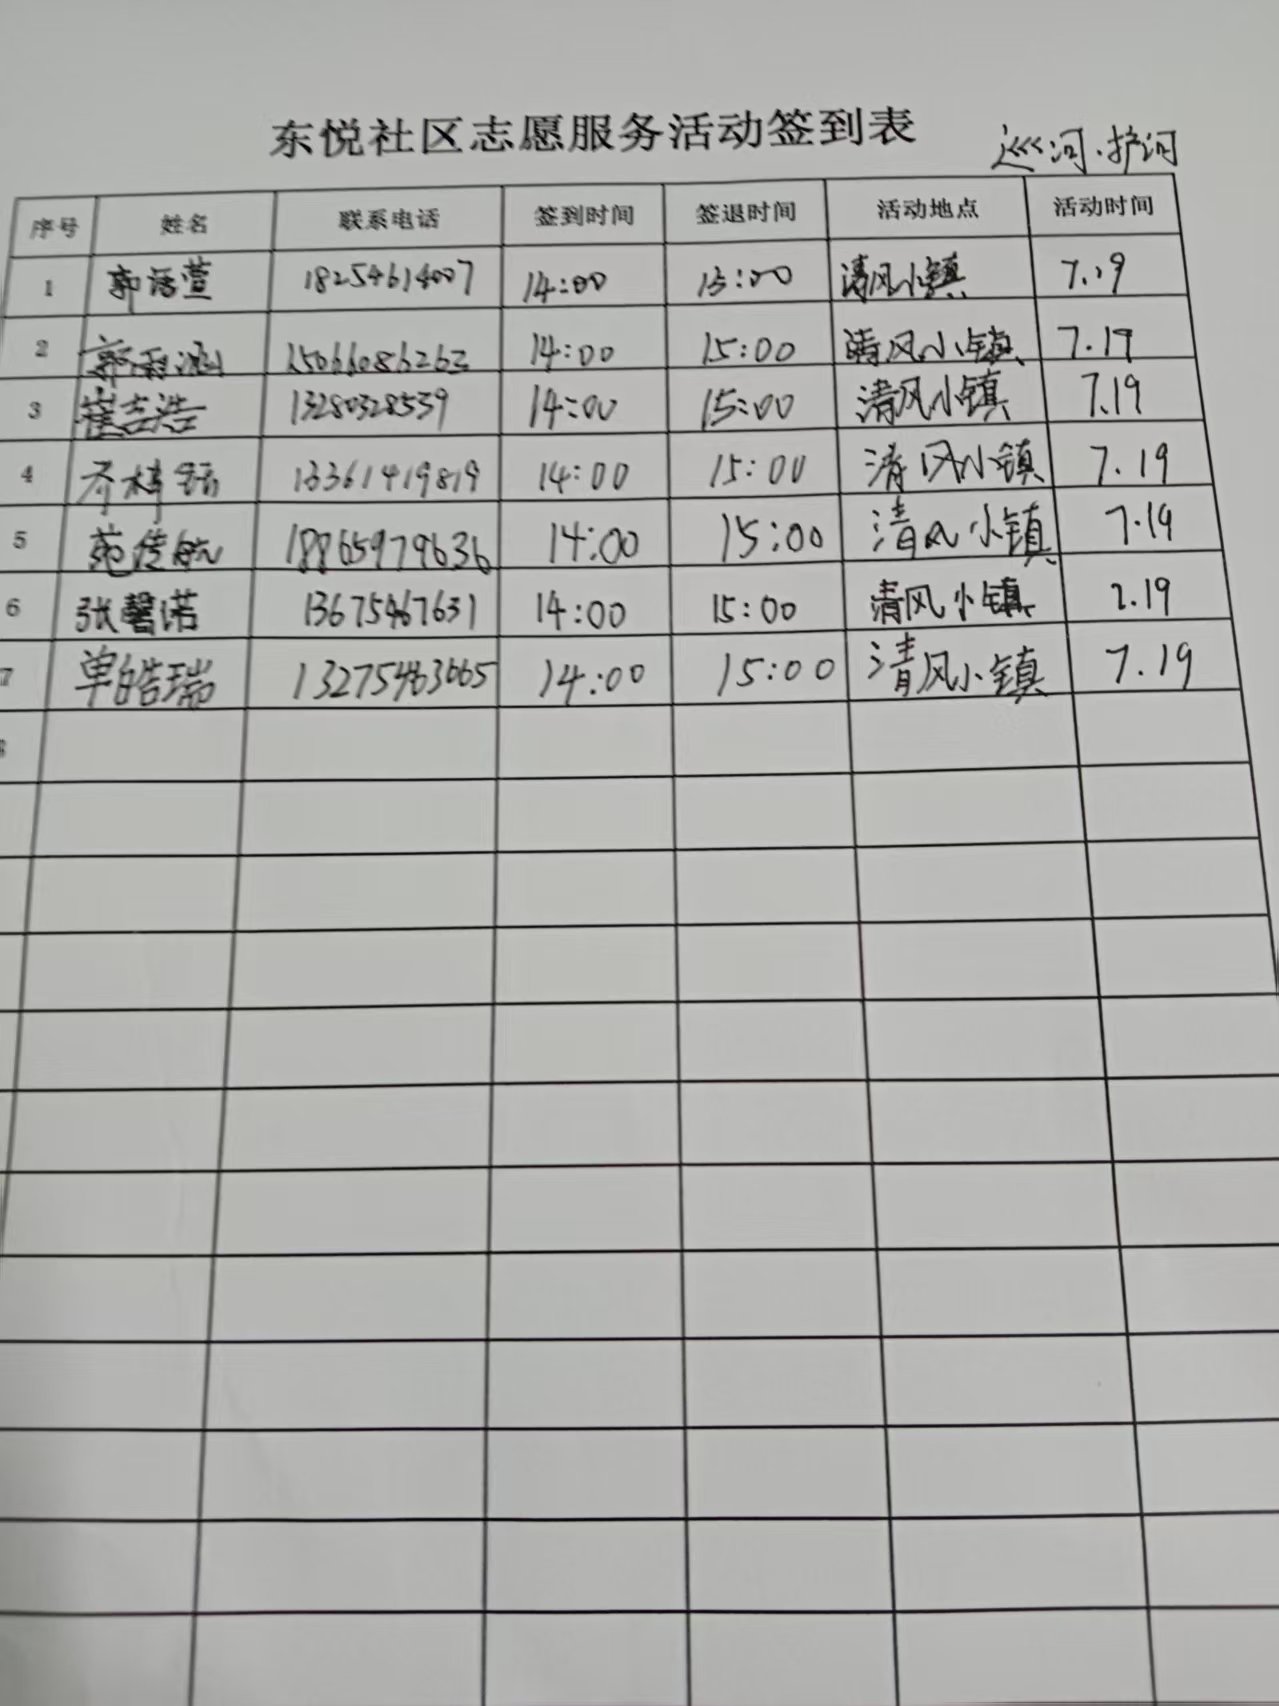 东悦社区志愿服务活动签到表
巡河、护河
序号 姓名 联系电话 签到时间 签退时间 活动地点 活动时间
1 郭语萱 18254614007 14:00 15:00 清风小镇 7.19
2 郭雨涵 15066086263 14:00 15:00 清风小镇 7.19
3 崔吉浩 13280328539 14:00 15:00 清风小镇 7.19
4 乔梓 13361419819 14:00 15:00 清风小镇 7.19
5 苑俊航 18865979636 14:00 15:00 清风小镇 7.19
6 张馨诺 13675467631 14:00 15:00 清风小镇 7.19
7 单皓瑞 13275463065 14:00 15:00 清风小镇 7.19